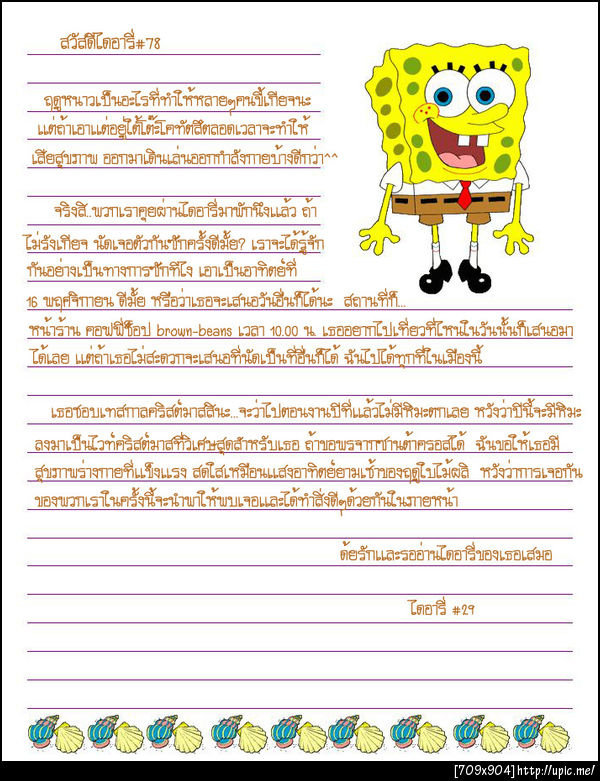 สวัสดีไดอารี่#78
ฤดูหนาวเป็นอะไรที่ทำให้หลายๆคนขี้เกียจนะ
แต่ถ้าเอาแต่อยู่ใต้โต๊ะโคทัตสึตลอดเวลาจะทำให้
เสียสุขภาพ ออกมาเดินเล่นออกกำลังกายบ้างดีกว่า^^
จริงสิ..พวกเราคุยผ่านไดอารี่มาพักนึงแล้ว ถ้า
ไม่รังเกียจ นัดเจอตัวกันซักครั้งดีมั้ย? เราจะได้รู้จัก
กันอย่างเป็นทางการซักทีไง เอาเป็นอาทิตย์ที่
16 พฤศจิกายน ดีมั้ย หรือว่าเธอจะเสนอวันอื่นก็ได้นะ สถานที่ก็...
หน้าร้าน คอฟฟี่ช็อป brown-beans เวลา 10.00 น. เธออยากไปเที่ยวที่ไหนในวันนั้นก็เสนอมา
ได้เลย แต่ถ้าเธอไม่สะดวกจะเสนอที่นัดเป็นที่อื่นก็ได้ ฉันไปได้ทุกที่ในเมืองนี้
เธอชอบเทศกาลคริสต์มาสสินะ...จะว่าไปตอนงานปีที่แล้วไม่มีหิมะตกเลย หวังว่าปีนี้จะมีหิมะ
ลงมาเป็นไวท์คริสต์มาสที่วิเศษสุดสำหรับเธอ ถ้าขอพรจากซานต้าครอสได้ ฉันขอให้เธอมี
สุขภาพร่างกายที่แข็งแรง สดใสเหมือนแสงอาทิตย์ยามเช้าของฤดูใบไม้ผลิ หวังว่าการเจอกัน
ของพวกเราในครั้งนี้จะนำพาให้พบเจอและได้ทำสิ่งดีๆด้วยกันในภายหน้า
ด้วยรักและรออ่านไดอารี่ของเธอเสมอ
ไดอารี่ #29
[709x904]http://upic.me/